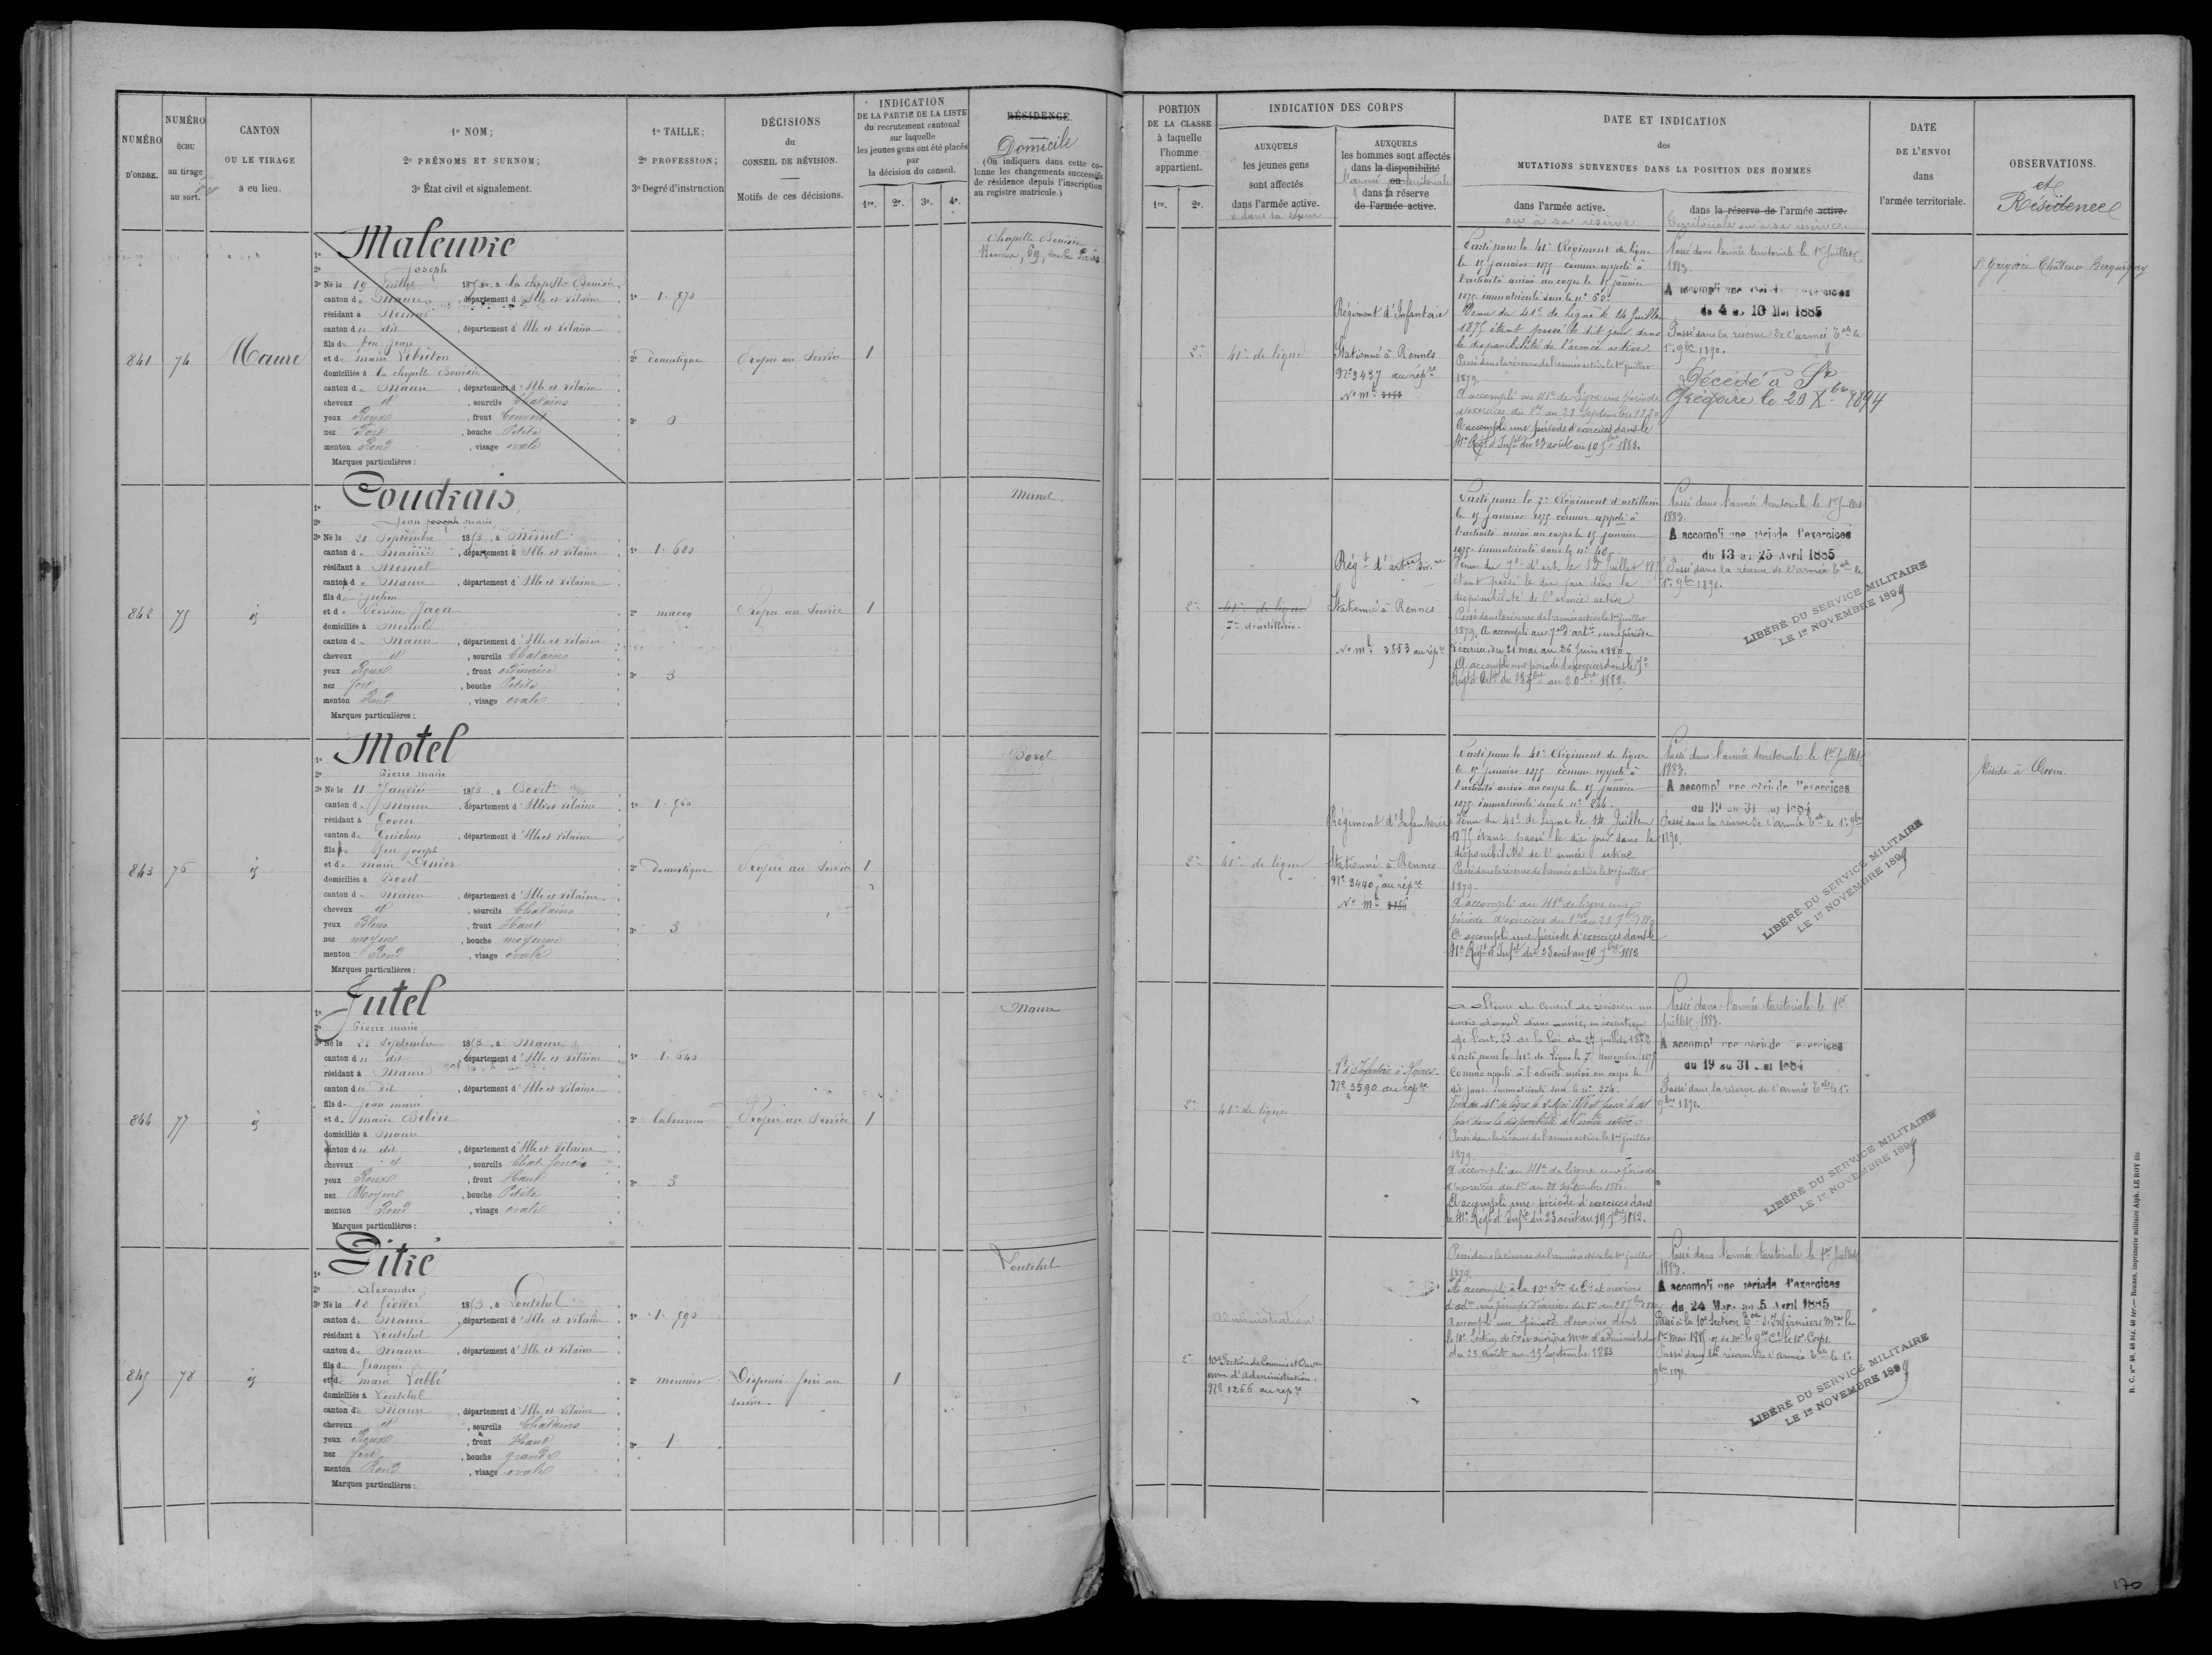 NUMÉRO
D'ORDRE.
NUMÉRO
ÉCHU
au tirage
au sort.
CANTON
OU LE TIRAGE
a eu lieu.
1º NOM;
2º PRÉNOMS ET SURNOM;
3º État civil et signalement.
1º TAILLE;
2º PROFESSION;
3º Degré d'instruction
DÉCISIONS
du
CONSEIL DE RÉVISION.
Motifs de ces décisions.
INDICATION
DE LA PARTIE DE LA LISTE
du recrutement cantonal
sur laquelle
les jeunes gens ont été placés
par
la décision du conseil.
1re. 2e. 3e. 4e.
RÉSIDENCE
Domicile
(On indiquera dans cette co-
lonne les changements successifs
de résidence depuis l'inscription
au registre matricule.)
841
74
Maure
1º Maleuvre
2º Joseph
3º Né le 19 Juillet 1853, à la chapelle Bouëxic
canton de Maure, département d'Ille et Vilaine
résidant à Rennes
canton du dit, département d'Ille et Vilaine
fils de feu Jean
et de marie Lebreton
domiciliés à la chapelle Bouëxic
canton de Maure, département d'Ille et Vilaine
cheveux et, sourcils Chatains
yeux Roux, front Couvert
nez Fort, bouche Petite
menton Rond, visage ovale
Marques particulières:
1º 1.670
2º domestique
3º 0
Propre au Service
1
Chapelle Bouëxic
Rennes, 69, rue de Paris
842
75
id
1º Coudrais
2º Jean Joseph marie
3º Né le 21 Septembre 1853, à Mernel
canton de Maure, département d'Ille et Vilaine
résidant à Mernel
canton de Maure, département d'Ille et Vilaine
fils de Julien
et de Perrine Jaga
domiciliés à Mernel
canton de Maure, département d'Ille et Vilaine
cheveux et, sourcils Chatains
yeux Roux, front ordinaire
nez fort, bouche Petite
menton Rond, visage ovale
Marques particulières:
1º 1.680
2º maçon
3º 3
Propre au Service
1
Mernel.
843
76
id
1º Motel
2º Pierre marie
3º Né le 11 Janvier 1853, à Bovel
canton de Maure, département d'Ille et Vilaine
résidant à Goven
canton de Guichen, département d'Ille et Vilaine
fils de feu Joseph
et de marie
domiciliés à Bovel
canton de Maure, département d'Ille et Vilaine
cheveux et, sourcils Chatains
yeux Bleus, front Haut
nez moyen, bouche moyenne
menton Rond, visage ovale
Marques particulières:
1º 1.560
2º domestique
3º 3
Propre au Service
1
Bovel
844
77
id
1º Jutel
2º Pierre marie
3º Né le 22 Septembre 1853, à Maure
canton du dit, département d'Ille et Vilaine
résidant à Maure
canton du dit, département d'Ille et Vilaine
fils de Jean marie
et de marie Bobin
domiciliés à Maure
canton du dit, département d'Ille et Vilaine
cheveux et, sourcils Chat. foncés
yeux Roux, front Haut
nez Moyen, bouche Petite
menton Rond, visage ovale
Marques particulières:
1º 1.640
2º laboureur
3º 3
Propre au Service
1
Maure
845
78
id
1º Pitré
2º Alexandre
3º Né le 10 février 1853, à Loutehel
canton de Maure, département d'Ille et Vilaine
résidant à Loutehel
canton de Maure, département d'Ille et Vilaine
fils de françois
et de marie Labbé
domiciliés à Loutehel
canton de Maure, département d'Ille et Vilaine
cheveux et, sourcils Chatains
yeux Roux, front Haut
nez fort, bouche grande
menton Rond, visage ovale
Marques particulières:
1º 1.590
2º meunier
3º 1
Dispensé frère au
service.
1
Loutehel
PORTION
DE LA CLASSE
à laquelle
l'homme
appartient.
1re. 2e.
INDICATION DES CORPS
AUXQUELS
les jeunes gens
sont affectés
dans l'armée active.
& dans sa réserve
AUXQUELS
les hommes sont affectés
dans la disponibilité
l'armée ou territoriale
dans la réserve
de l'armée active.
DATE ET INDICATION
des
MUTATIONS SURVENUES DANS LA POSITION DES HOMMES
dans l'armée active.
ou à sa réserve
dans la réserve de l'armée active.
territoriale ou à sa réserve.
DATE
DE L'ENVOI
dans
l'armée territoriale.
OBSERVATIONS.
et
Résidence
2e
41e de ligne
Régiment d'Infanterie
Stationné à Rennes
Nº 3437 au répre
Nº mle
Parti pour le 41e Régiment de ligne
le 15 janvier 1875 comme appelé à
l'activité arrivé au corps le 15 janvier
1875 immatriculé sous le nº 62.
Venu du 41e de Ligne le 14 Juillet
1875 étant passé le dit jour dans
la disponibilité de l'armée active.
Passé dans la réserve de l'armée active le 1er juillet
1879.
A accompli au 41e de Ligne une période
d'exercices du 1er au 28 Septembre 1880
A accompli une période d'exercices dans le
41e Régt d'Infie du 23 août au 19 7bre 1882.
Passé dans l'armée territoriale le 1er Juillet
1883.
A accompli une période d'exercices
du 4 au 16 Mai 1885
Passé dans la réserve de l'armée Tale le
1er 9bre 1890.
Décédé à St
Grégoire le 20 Xbre 1894
St Grégoire Château Becquigny
2e
41e de ligne
7e d'artillerie.
Régt d'artie Div.re
Stationné à Rennes
Nº mle 3853 au répre
Parti pour le 7e Régiment d'artillerie
le 15 janvier 1875 comme appelé à
l'activité arrivé au corps le 15 janvier
1875 immatriculé sous le nº 40
étant passé le dit jour dans la
disponibilité de l'armée active
Passé dans la réserve de l'armée active le 1er juillet
1879. A accompli au 7e d'artie une période
d'exercices du 21 mai au 26 Juin 1880.
A accompli une période d'exercices dans le 7e
Passé dans l'armée territoriale le 1er Juillet
1883.
A accompli une période d'exercices
du 13 au 25 Avril 1885
Passé dans la réserve de l'armée Tale le
1er 9bre 1890.
LIBÉRÉ DU SERVICE MILITAIRE
LE 1er NOVEMBRE 1899
2e
41e de ligne
Régiment d'Infanterie
Stationné à Rennes
Nº 3440 au répre
Nº mle
Parti pour le 41e Régiment de ligne
le 15 janvier 1875 comme appelé à
l'activité arrivé au corps le 15 janvier
1875 immatriculé sous le nº 244.
Venu du 41e de Ligne le 14 Juillet
1875 étant passé le dit jour dans la
disponibilité de l'armée active
Passé dans la réserve de l'armée active le 1er juillet
1879.
A accompli au 41e de ligne une
période d'exercices du 1er au 28 7bre 1880
A accompli une période d'exercices dans le
41e Régt d'Infie du 23 août au 19 7bre 1882
Passé dans l'armée territoriale le 1er Juillet
1883.
A accompli une période d'exercices
du 19 au 31 Mai 1884
Passé dans la réserve de l'armée Tale le 1er 9bre
1890.
LIBÉRÉ DU SERVICE MILITAIRE
LE 1er NOVEMBRE 1899
Réside à Goven.
2e
41e de ligne
Rt d'Infanterie à Rennes.
Nº 3590 au répre
A obtenu du Conseil de révision un
sursis d'appel d'une année, en exécution
de l'art. 23 de la Loi du 27 juillet 1872
Parti pour le 41e de Ligne le 7 novembre 1875
Comme appelé à l'activité arrivé au corps le
dit jour immatriculé sous le nº 224.
jour dans la disponibilité de l'armée active
Passé dans la réserve de l'armée active le 1er juillet
1879.
A accompli au 41e de ligne une période
d'exercices du 1er au 28 Septembre 1880.
A accompli une période d'exercices dans
le 41e Régt d'Infie du 23 août au 19 7bre 1882.
Passé dans l'armée territoriale le 1er
juillet 1883.
A accompli une période d'exercices
du 19 au 31 Mai 1884
Passé dans la réserve de l'armée Tale le 1er
9bre 1890.
LIBÉRÉ DU SERVICE MILITAIRE
LE 1er NOVEMBRE 1899
2e
Administration
10e Section de Commis et Ouvr
d'administration.
Nº 1266 au répre
Passé dans la réserve de l'armée active le 1er juillet
1879.
A accompli à la 10e Son de Cis et ouvriers
d'adon une période d'exercices du 1er au 28 7bre 1880
A accompli une période d'exercices dans
la 10e Section de Cis et ouvriers mres d'administration
du 23 Août au 19 Septembre 1883
Passé dans l'armée territoriale le 1er Juillet
1883.
A accompli une période d'exercices
du 24 Mars au 5 Avril 1885
Passé à la 10e Section Tale d'Infirmiers Mres le
Passé dans la réserve de l'armée Tale le 1er
9bre 1890.
LIBÉRÉ DU SERVICE MILITAIRE
LE 1er NOVEMBRE 1899
R. C. nos 48, 48 bis, 48 ter. — Rennes, imprimerie militaire Alph. LE ROY fils
170